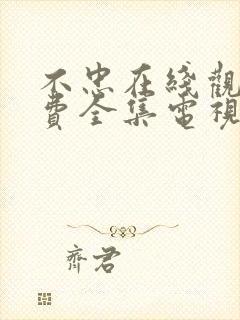 不忠在綫觀
費全集電視
齊君